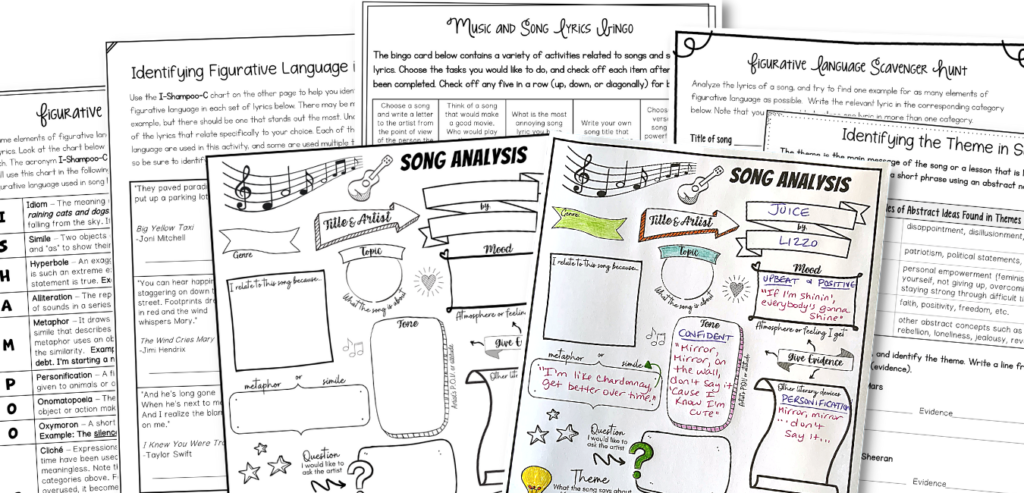 figurative
me elements of figurative lan
rics. Look at the chart below
h. The acronym I-Shampoo-C
ll use this chart in the following
urative language used in song l
I
Idiom – The meaning
raining cats and dogs
falling from the sky. I
S
Simile – Two objects
and "as" to show their
H
Hyperbole – An exag
is such an extreme e
statement is true. Ex
A
Alliteration – The rep
of sounds in a series
M
Metaphor – It draws
simile that describes
metaphor uses an ob
the similarity. Examp
debt. I'm starting a n
P
Personification – A fi
given to animals or o
O
Onomatopoeia – The
object or action mak
O
Oxymoron – A short
Example: The silenc
Cliché – Expressions
time have been used
meaningless. Note th
categories above. F
overused, it become
Identifying Figurative Language i
Use the I-Shampoo-C chart on the other page to help you iden
figurative language in each set of lyrics below. There may be m
example, but there should be one that stands out the most. Und
of the lyrics that relate specifically to your choice. Each of th
language are used in this activity, and some are used multiple t
so be sure to identif
"They paved paradi
put up a parking lot
Big Yellow Taxi
-Joni Mitchell
"You can hear happin
staggering on down t
street. Footprints dre
in red and the wind
whispers Mary."
The Wind Cries Mary
-Jimi Hendrix
"And he's long gone
When he's next to m
And I realize the blam
on me."
I Knew You Were Tro
-Taylor Swift
Music and Song Lyrics Bingo
The bingo card below contains a variety of activities related to songs and s
lyrics. Choose the tasks you would like to do, and check off each item after
been completed. Check off any five in a row (up, down, or diagonally) for b
Choose a song
and write a letter
to the artist from
the point of view
of the person the
Think of a song
that would make
a good movie.
Who would play
What is the most
annoying song
lyric you
Write your own
song title that
Choose
verse
song
power
Figurative Language Scavenger Hunt
Analyze the lyrics of a song, and try to find one example for as many elements of
figurative language as possible. Write the relevant lyric in the corresponding category
below. Note that you
lyric in more than one category.
Title of song
Identifying the Theme in S
The theme is the main message of the song or a lesson that is l
a short phrase using an abstract n
les of Abstract Ideas Found in Themes
disappointment, disillusionment,
patriotism, political statements,
personal empowerment (feminis
yourself, not giving up, overcom
staying strong through difficult t
faith, positivity, freedom, etc.
other abstract concepts such as
rebellion, loneliness, jealousy, rev
and identify the theme. Write a line fr
(evidence).
Mars
Evidence
Sheeran
Evidence
SONG ANALYSIS
Title & Artist
by
Genre
Topic
What the song is about
Mood
I relate to this song because...
Atmosphere or feelin
Tone
Artist's P.O.V. or attitude
Give E
metaphor or simile
Other lit
Question
I would like to
ask the artist
?
SONG ANALYSIS
Genre
Title & Artist
JUICE
by
LIZZO
Topic
What the song is about
Mood
UPBEAT & POSITIVE
"If I'm shinin',
everybody's gonna
Shine"
I relate to this song because...
Atmosphere or feeling I get
Tone
CONFIDENT
"Mirror,
Mirror, on
the wall,
don't say it
'cause I
know I'm
cute"
Artist's P.O.V. or attitude
Give Evidence
metaphor or simile
"I'm like chardonnay,
get better over time."
Other literary devices
PERSONIFICATION
Mirror, mirror
... don't
Say it...
Question
I would like to
ask the artist
?
Theme
What the song says about